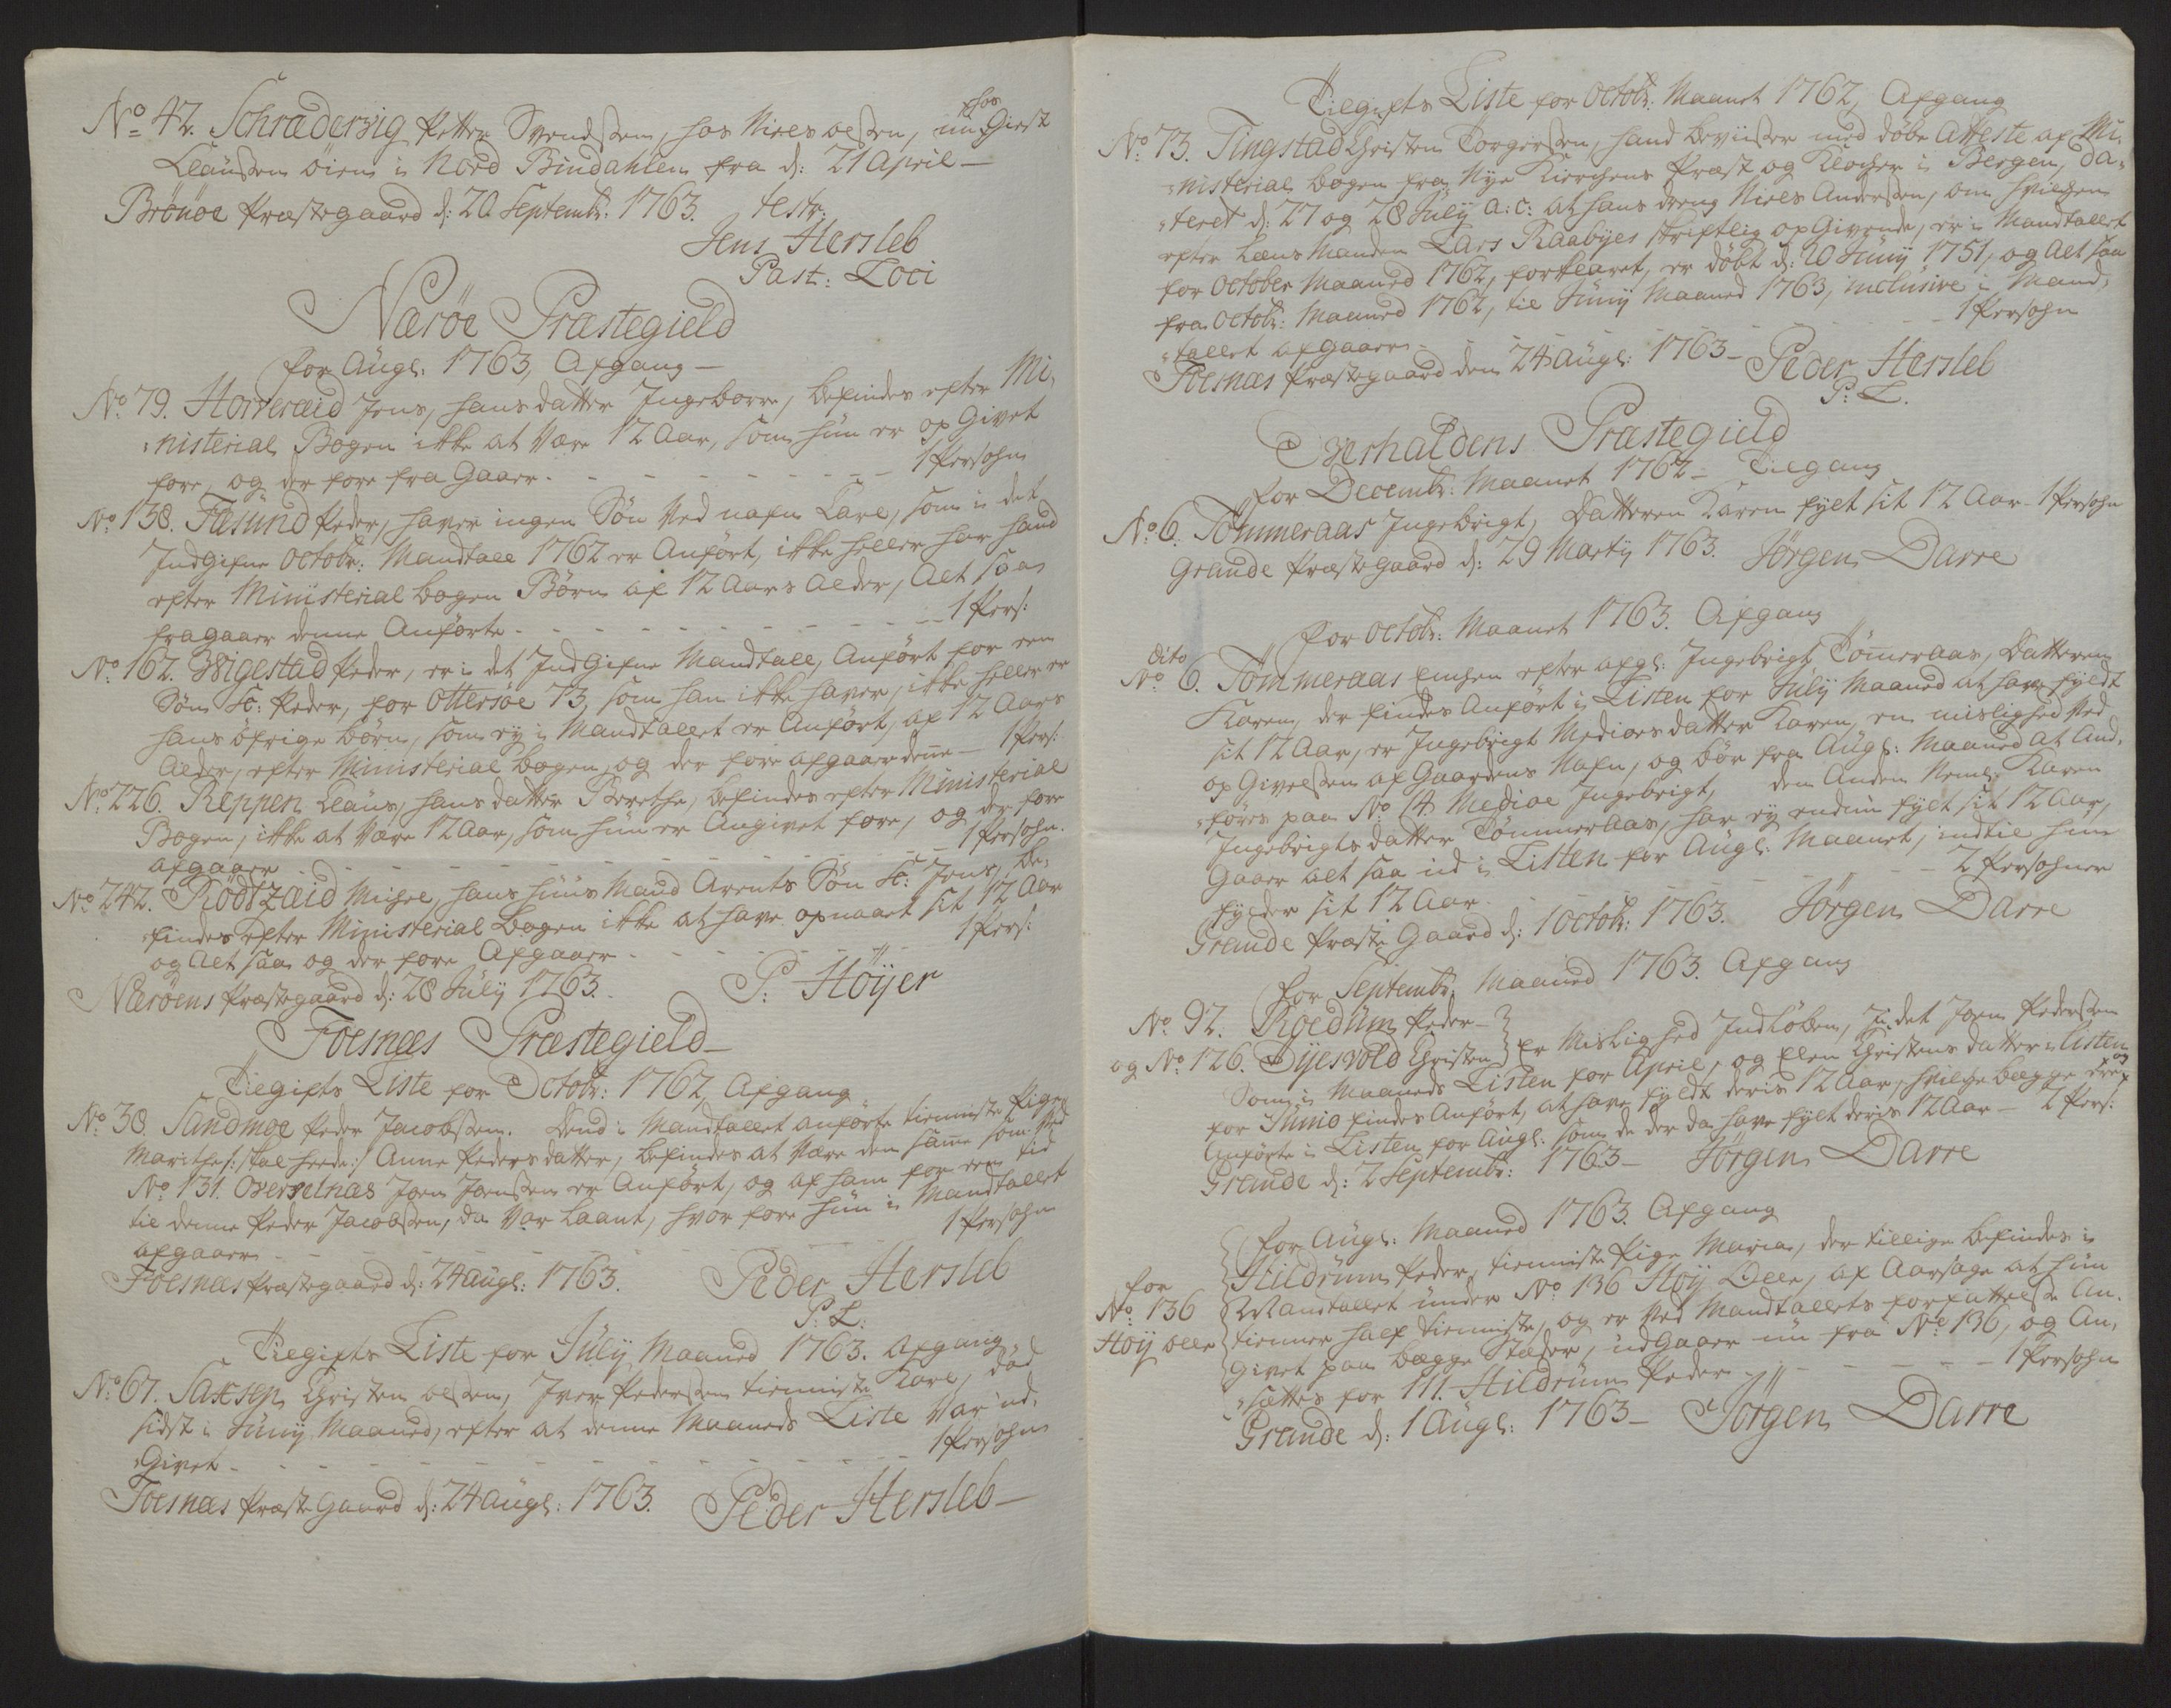 No 42. Schradervig Petter Svendssen, hos Niels oelsen, nu hos Giert
Clausen öien i Nord Bindahlen fra d: 21 April —
Brönöe Præstegaard d: 20 Septembr. 1763. testr:
Jens Hersleb
Past: Loci
Næröe Præstegield
for Augl. 1763, Afgang —
No 79. Horveræid Jens, hans datter Ingeborre, befindes efter Mi,
nisterial Bogen ikke at være 12 Aar, som hun er op Givet
fore, og der fore fra Gaaer. - - - 1 Persohn
No 138. Fæsund Peder, haver ingen Sön ved nafn Carl, som i det
IndGifne Octobr: Mandtall 1762 er Anfört, ikke heller har hand
efter Ministerial bogen Börn af 12 Aars Alder, Alt saa
fragaaer denne Anförte - - - 1 Pers:
No 162. Wigestad Peder, er i det IndGifne Mandtall, Anfört for een
Sön Sc: Peder, for Ottersöe 73, som han ikke haver, ikke heller er
hans öfrige börn, som ey i Mandtallet er Anfört, af 12 Aars
Alder, efter Ministerial bogen, og der fore afgaaer denne - 1 Pers:
No 226. Reppen Claus, hans datter Berethe, befindes efter Ministerial
Bogen, ikke at være 12 Aar, som hun er Angivet fore, og der fore
afgaaer - - - 1 Persohn.
No 242. Rödtzæid Michel, hans huus Mand Arents Sön Sc: Jens, be,
findes efter Ministerial bogen ikke at have opnaaet sit 12 Aar
og Alt saa og der fore Afgaaer - - - 1 Pers:
Næröens Præstegaard d: 28 July 1763. P: Höyer
Foesnæs Præstegield
Tilgifts Liste for Octobr: 1762, Afgang
No 38. Sandmoe Peder Jacobssen. Dend i Mandtallet anförte tienniste Pige
Marithe /: skal heede :/ Anne Peders datter, befindes at være den samme som ved
No 131. Overselnæs Joen Joenssen er Anfört, og af ham for een tid
til denne Peder Jacobssen, da var laant, hvor fore hun i Mandtallet
afgaaer - - - 1 Persohn
Foesnæs Præstegaard d: 24 Augl: 1763. Peder Hersleb
P: L:
Tilgifts Liste for July Maaned 1763. Afgang
No 67. Saxsen Christen oelssen, Iver Pederssen tienniste Karl, död
sidst i Juny Maaned, efter at denne Maaneds Liste var ud,
Givet - - - 1 Persohn
Foesnæs Præste Gaard d: 24 Augl: 1763. Peder Hersleb —
Tilgifts Liste for Octobr: Maanet 1762, Afgang
No 73. Tingstad Christen Torgerssen, hand beviisser med döbe Atteste af Mi,
nisterial bogen fra Nye Kirchens Præst og Klocher i Bergen, da,
teret d: 27 og 28 July a: c: at hans dreng Niels Anderssen, om hvilchen
efter Lens Manden Lars Raabyes skriftlig opGivende, er i Mandtallet
for October Maaned 1762, forklaret, er döbt d: 20 Juny 1751, og Alt saa
fra Octobr: Maaned 1762, til Juny Maaned 1763, inclusive i Mand,
tallet afgaaer - - - 1 Persohn
Foesnæs Præstegaard den 24 Augl: 1763 — Peder Hersleb
P: L.
Overhaldens Præstegield
for Decembr: Maanet 1762 — Tilgang
No 6. Tömmeraas Ingebrigt, Datteren Karen fylt sit 12 Aar - 1 Persohn
Grande Præstegaard d: 29 Marty 1763. Jörgen Darre
for Octobr: Maanet 1763. Afgang
dito
No 6. Tömmeraas Enchen efter afgl: Ingebrigt Tömeraas, Datteren
Karen, der findes Anfört i Listen for July Maaned at have fyldt
sit 12 Aar, er Ingebrigt Mediaes datter Karen, en mislighed ved
op Givelssen af Gaardens Nafn, og bör fra Augl: Maaned at And,
föres paa No 14 Mediae Ingebrigt, den Anden Neml: Karen
Ingebrigts datter Tömmeraas, har ey endnu fylt sit 12 Aar,
Gaaer alt saa ud i Listen for Augl: Maanet, indtil hun
fylder sit 12 Aar - - - 2 Persohner
Grande Præste Gaard d: 1 Octobr: 1763. Jörgen Darre
for Septembr: Maaned 1763. Afgang
No 92. Roedum Peder -
og No 126. Dyesvold Christen } Er Mislighed Indlöben, Ti det Joen Pederssen
Som i Maaneds Listen for April, og Elen Christens datter i Listen
for Junio findes Anfört, at have fyldt deris 12 Aar, hvilche begge
Anförte i Listen for Augl: som de der da have fylt deris 12 Aar - 2 Pers:
Grande d: 2 Septembr: 1763 — Jörgen Darre
for Augl: Maaned 1763. Afgang
for
No 136
Höy olle
Hildrum Peder, tienniste Pige Maria, der tillige befindes i
Mandtallet under No 136 Höy Olle, af Aarsage at hun
tienner half tienniste, og er ved Mandtallets forfattelse An,
Givet paa begge Stæder, udgaaer nu fra No 136, og An,
sættes for 111. Hildrum Peder - - - 1 Persohn
Grande d: 1 Augl: 1763 — Jörgen Darre